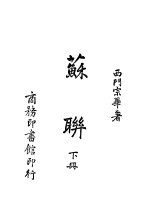 西門宗華著
蘇聯
下冊
商務印書館印行